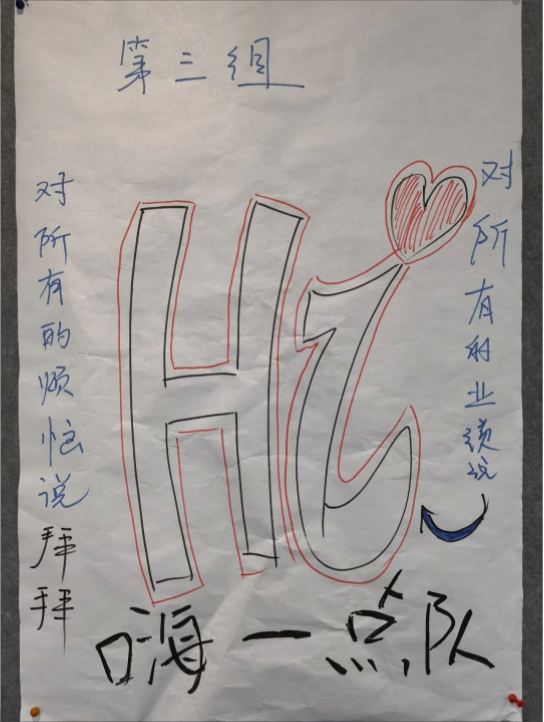 第三组
对所有的烦恼说拜拜
Hi
对所有的业绩说
嗨一点队